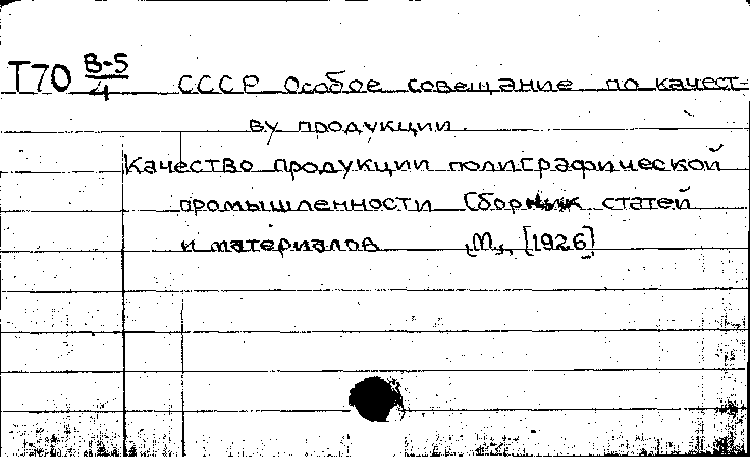 Т70 В-5/4 СССР Особое совещание по качест-
ву продукции.
Качество продукции полиграфической
промышленности Сборник статей
и материалов М., [1926]